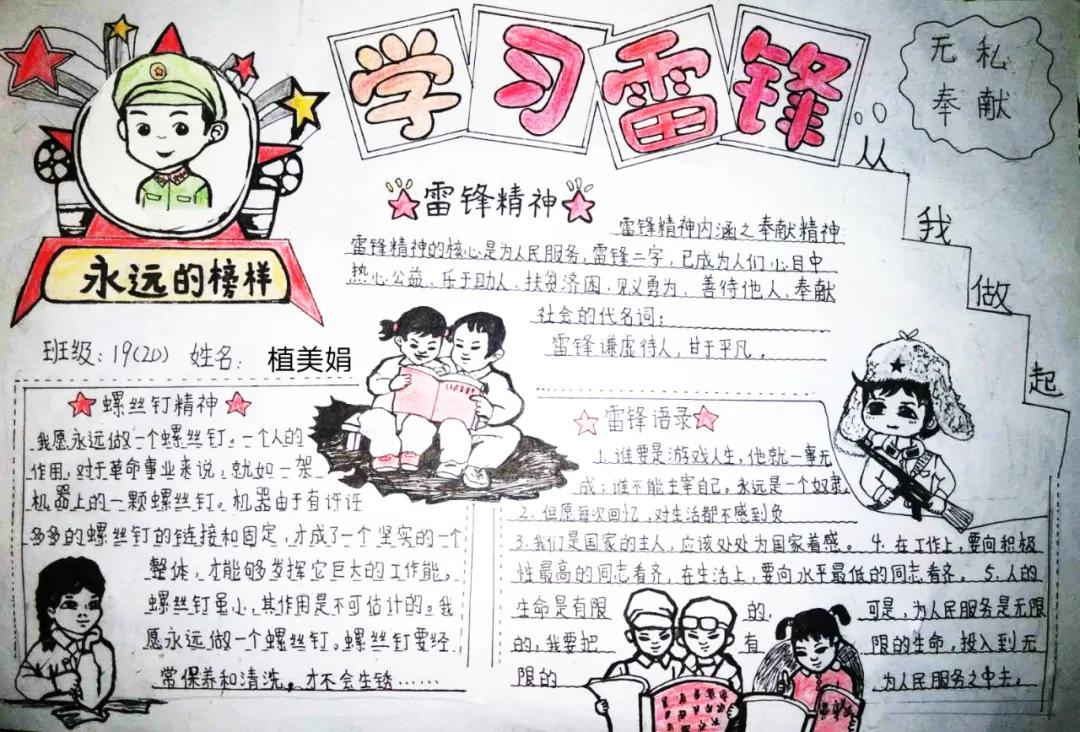 学习雷锋
从我做起
无私
奉献
永远的榜样
班级：19(20) 姓名：植美娟
雷锋精神
雷锋精神内涵之奉献精神
雷锋精神的核心是为人民服务，雷锋二字，已成为人们心目中
热心公益、乐于助人、扶贫济困、见义勇为、善待他人、奉献
社会的代名词；
雷锋谦虚待人，甘于平凡。
螺丝钉精神
我愿永远做一个螺丝钉。一个人的
作用，对于革命事业来说，就如一架
机器上的一颗螺丝钉。机器由于有许许
多多的螺丝钉的链接和固定，才成了一个坚实的一个
整体，才能够发挥它巨大的工作能。
螺丝钉虽小，其作用是不可估计的。我
愿永远做一个螺丝钉。螺丝钉要经
常保养和清洗，才不会生锈……
雷锋语录
1.谁要是游戏人生，他就一事无
成；谁不能主宰自己。永远是一个奴隶。
2.但愿每次回忆，对生活都不感到负
3.我们是国家的主人，应该处处为国家着感。 4.在工作上，要向积极
性最高的同志看齐，在生活上，要向水平最低的同志看齐。5.人的
生命是有限的，可是，为人民服务是无限
的，我要把有限的生命，投入到无
限的为人民服务之中去。